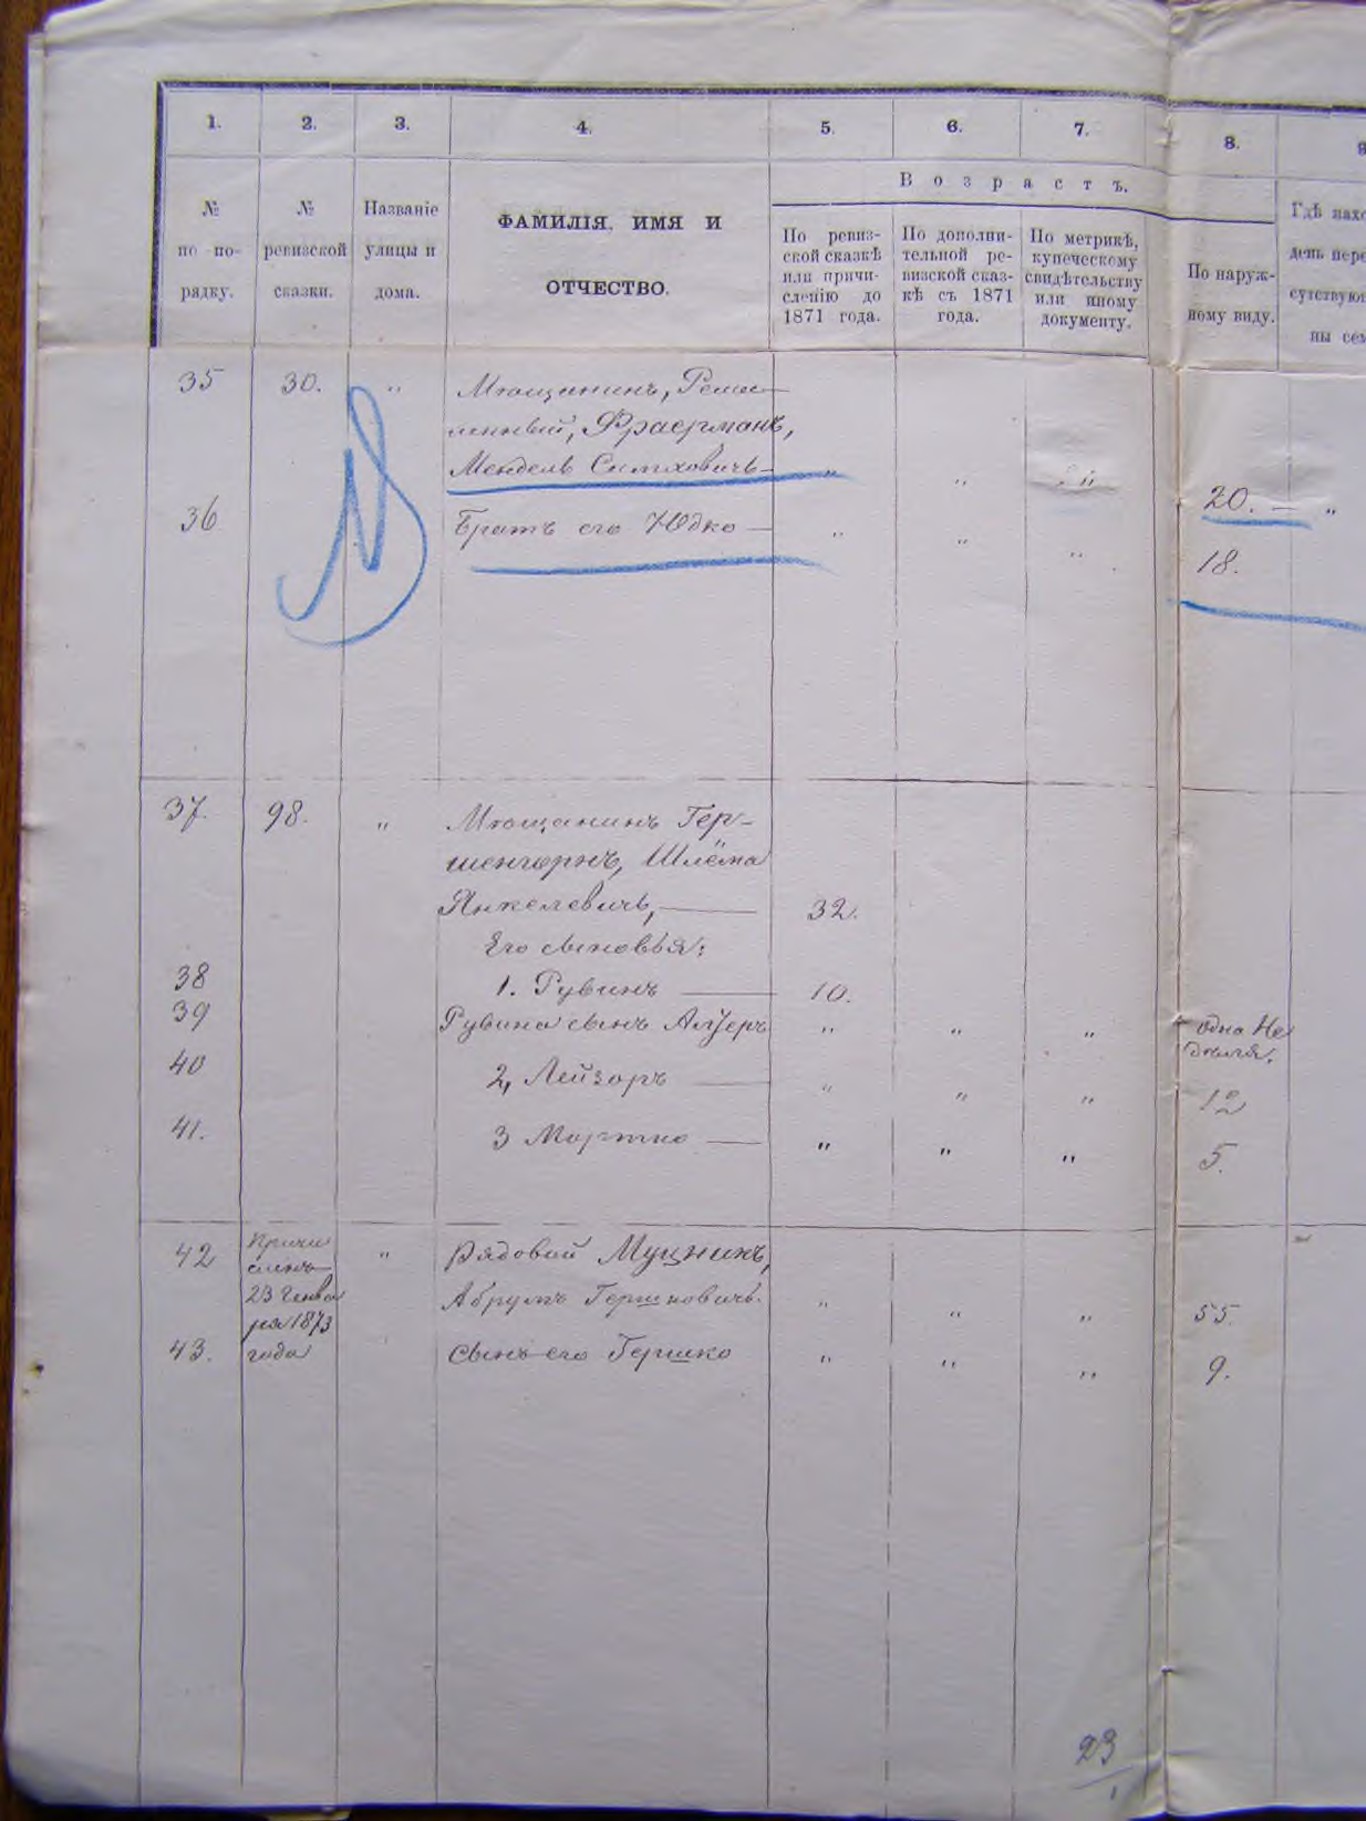 1. 2. 3. 4. 5. 6. 7. 8. 9
Возрастъ.
№ по по-рядку.
№ ревизской сказки.
Названіе улицы и дома.
ФАМИЛІЯ, ИМЯ И
ОТЧЕСТВО.
По ревиз-
ской сказкѣ
или причи-
сленію до
1871 года.
По дополни-
тельной ре-
визской сказ-
кѣ съ 1871
года.
По метрикѣ,
купеческому
свидѣтельству
или иному
документу.
По наруж-
ному виду.
Гдѣ нахо
день пере
сутствую
ны сем
35 30. " Мѣщанинъ, Ремес-
ленный, Фраерманъ,
Мендель Симховичъ — " " " 20. — "
36 Братъ его Юдко — " " " 18.
37. 98. " Мѣщанинъ Гер-
шенгорнъ, Шлёма
Янкелевичъ, — 32.
Его сыновья:
38 1. Рувинъ — 10.
39 Рувина сынъ Алтеръ " " " одна Не
дѣля.
40 2, Лейзоръ — " " " 12
41. 3 Мортко — " " " 5.
42 Причи " Рядовой Муцникъ,
сленъ
23 Генва Абрумъ Гершковичъ. " " " 55.
ря 1873
43. года сынъ его Гершко " " " 9.
23
1